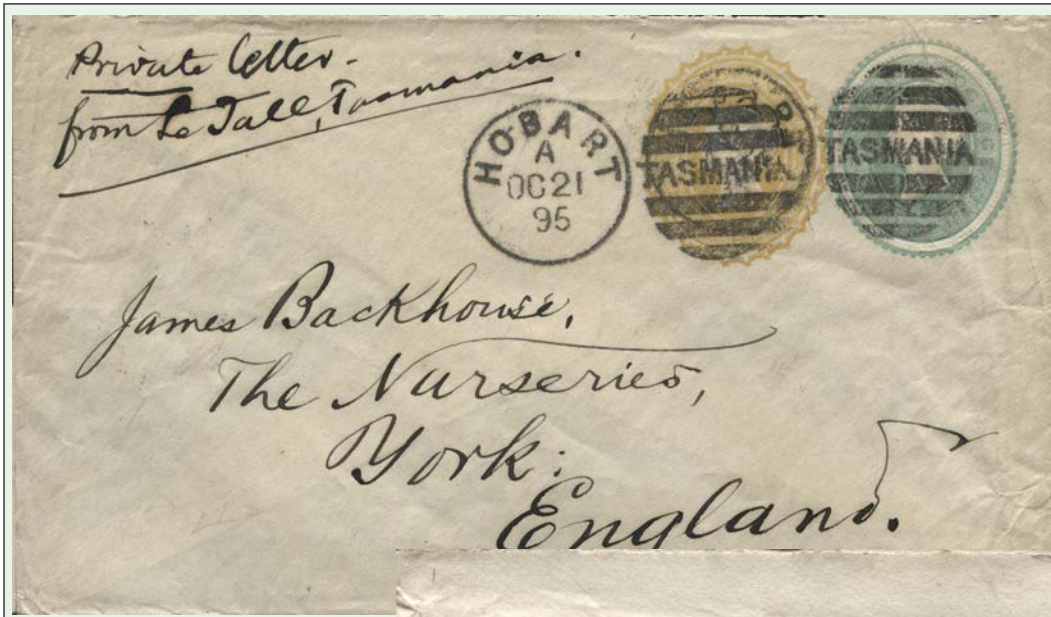 Private letter.
from Le Tall, Tasmania.
HOBART
A
OC 21
95
TASMANIA
TASMANIA
James Backhouse,
The Nurseries,
York:
England.